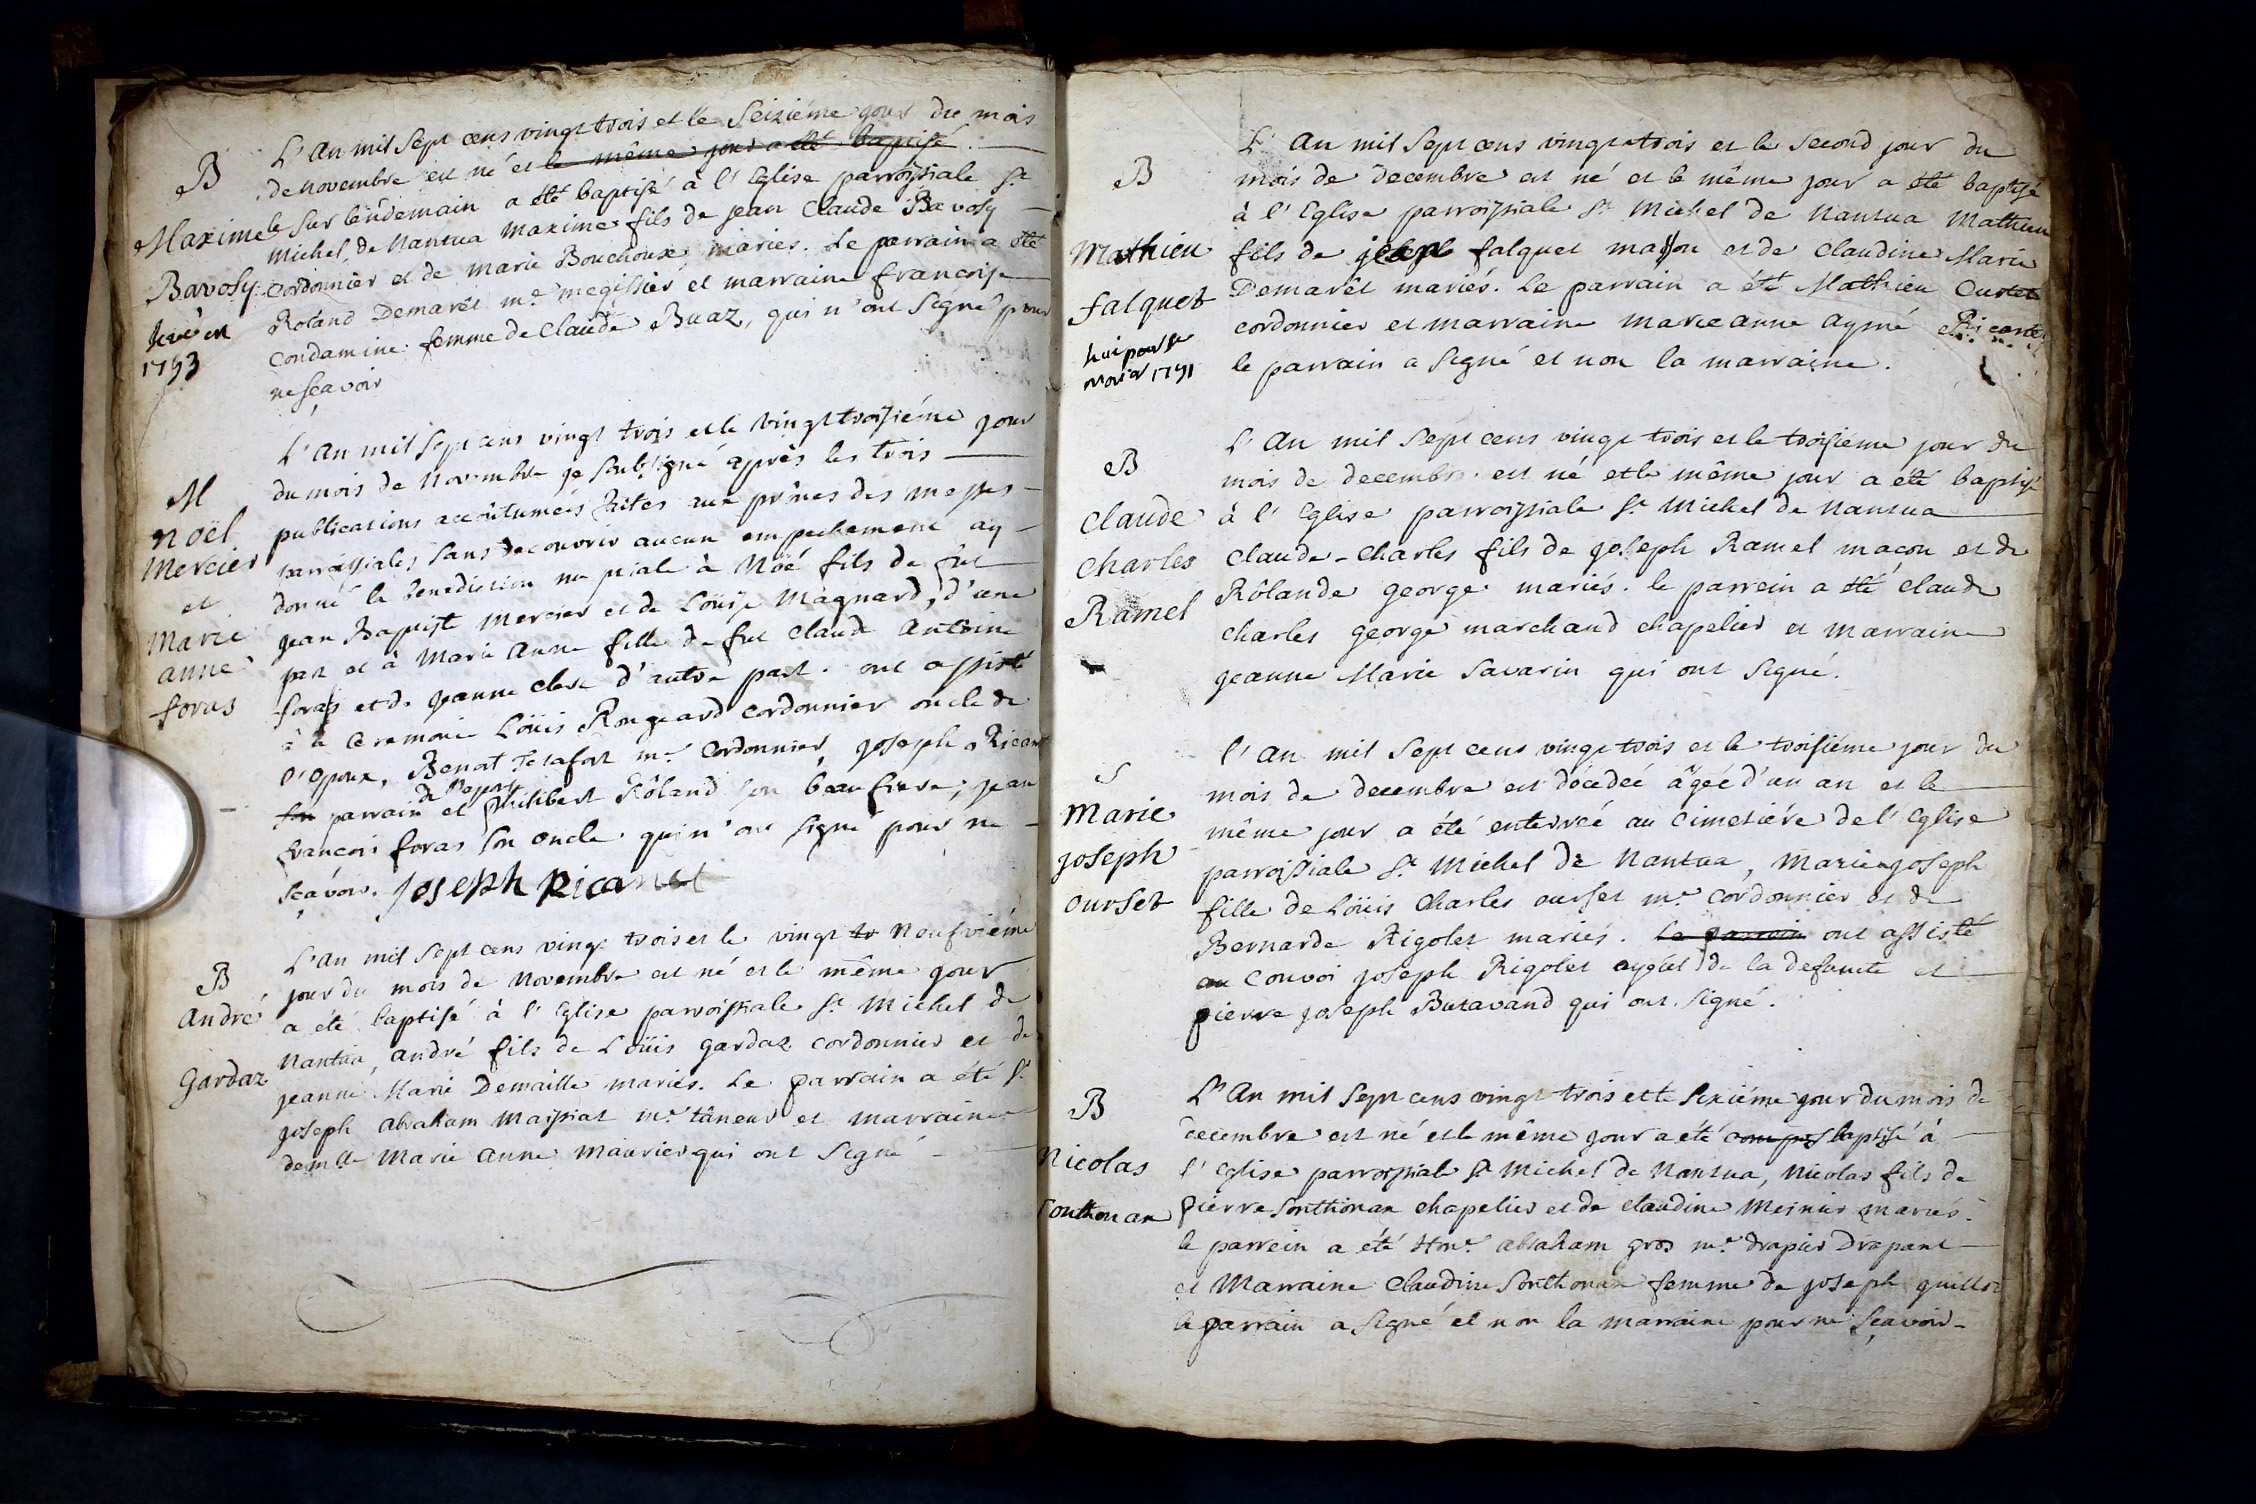 B
Maxime
Bavosy
1753
L'An mil Sept cens vingt trois et le Seiziéme jour du mois
de novembre est né et le même jour a été baptisé
le sur lendemain a été baptisé à l'Eglise parroissiale St
Michel de Nantua Maxime fils de jean Claude Bavosy
Cordonnier et de Marie Bouchoux mariés. Le parrain a été
Roland Demarêt me megissier et marraine francoise
Condamine femme de Claude Buaz, qui n'ont Signé pour
ne sçavoir
M
noël
Mercier
et
Marie
anne
foras
L'An mil Sept cens vingt trois et le vingt troisiéme jour
du mois de Novembre je soubsigné après les trois
publications accoûtumées faites aux prônes des messes
parroissiales sans decouvrir aucun empechement ay
donné la benediction nuptiale à Noé fils de fut
jean Baptiste Mercier et de Loüise Magnard, d'une
part et à Marie Anne fille de fut Claude Antoine
foras et de jeanne Clere d'autre part. ont assisté
à la Ceremonie Loüis Rougeard cordonnier oncle de
l'Epoux, Benoit Tetafort me Cordonnier joseph Ricanet
son parrain et philibert Rôland son beau frere; jean
francois foras son oncle qui n'ont signé pour ne
sçavoir. joseph Ricanet
B
André
Gardaz
L'an mil Sept cens vingt trois et le vingt tr Neufviéme
jour du mois de Novembre est né et le même jour
a été baptisé à l'Eglise parroissiale St Michel de
Nantua, André fils de Loüis Gardaz cordonnier et de
jeanne Marie Demaille mariés. Le parrain a été Sr
joseph abraham Maissiat me tâneur et marraine
demlle Marie Anne Maurier qui ont Signé
B
Mathieu
falquet
1751
L'An mil Sept cens vingt trois et le Second jour du
mois de decembre est né et le même jour a été baptisé
à l'Eglise parroissiale St Michel de Nantua Mathieu
fils de falquet masson et de Claudine Marie
Demarêt mariés. Le parrain a été Mathieu
cordonnier et marraine marie anne aymé
le parrain a Signé et non la marraine.
B
Claude
Charles
Ramel
L'An mil Sept cens vingt trois et le troisiéme jour du
mois de decembre est né et le même jour a été baptisé
à l'Eglise parroissiale St Michel de Nantua
Claude-Charles fils de joseph Ramel maçon et de
Rôlande george mariés. le parrein a été Claude
Charles george marchand chapelier et Marraine
jeanne Marie Savarin qui ont Signé.
S
Marie
joseph
ourset
l'An mil Sept cens vingt trois et le troisiéme jour du
mois de decembre est décedée âgée d'un an et le
même jour a été enterrée au Cimetiére de l'Eglise
parroissiale St Michel de Nantua, Marie joseph
fille de Loüis Charles ourset me Cordonnier et de
Bernarde Rigolet mariés. Le parrain ont assisté
au Convoi joseph Rigolet ayeul de la defunte et
pierre joseph Butavand qui ont Signé.
B
Nicolas
Sonthonax
L'An mil Sept cens vingt trois et le Sixiéme jour du mois de
decembre est né et le même jour a été baptisé à
l'Eglise parroissiale St Michel de Nantua, Nicolas fils de
Pierre Sonthonax chapelier et de Claudine Meinier mariés.
le parrein a été Honr abraham gros me drapier Drapant
et Marraine Claudine Sonthonax femme de joseph guillot
le parrain a Signé et non la marraine pour ne sçavoir